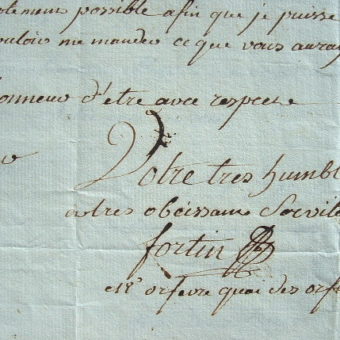 possible afin que je puisse
me mander ce que vous auray
d'etre avec respect
Votre tres humbl
et tres obeissant Servite
fortin
orfevre quai des orf